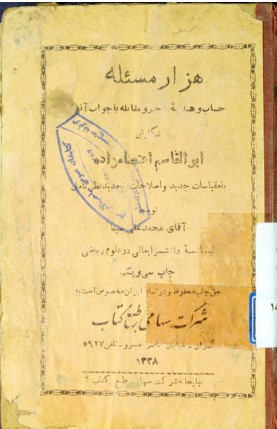 هزار مسئله
حساب و هندسه و جبر و مقابله با جواب آنها
نگارش
ابوالقاسم اعتصام‌زاده
با مقیاسات جدید و اصلاحات و تجدید نظر کامل
توسط
آقای محمدعلی
لیسانسیه دانشسرایعالی در علوم ریاضی
چاپ سی و
حق چاپ محفوظ و در تمام ایران مخصوص است به
شرکت سهامی طبع کتاب
تهران خیابان ناصر خسرو تلفن ۵۹۲۷
۱۳۲۸
چاپخانه شرکت سهامی طبع کتاب